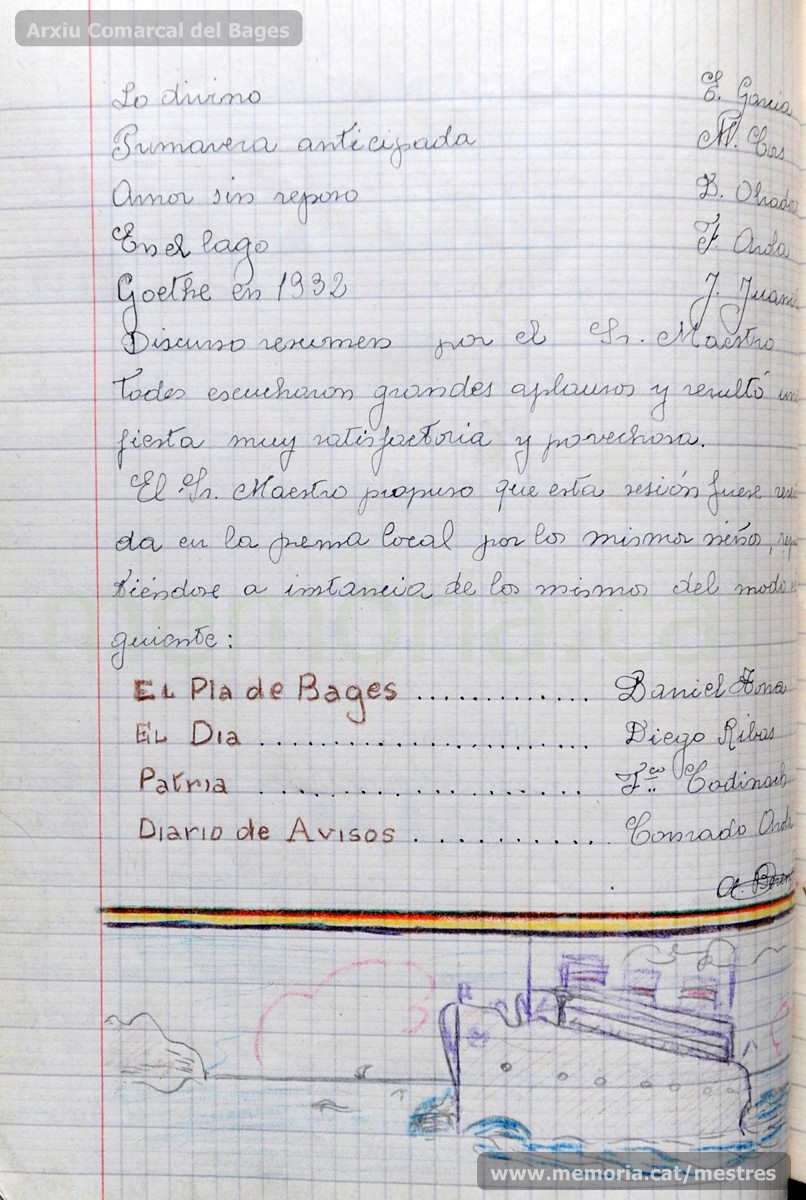 Arxiu Comarcal del Bages
Lo divino E. Garcia
Primavera anticipada M.
Amor sin reposo B.
En el lago F.
Goethe en 1932 J.
Discurso resumen por el Sr. Maestro
Todos escucharon grandes aplausos y resultó
fiesta muy satisfactoria y povechosa.
El Sr. Maestro propuso que esta sesión fuese
da en la prensa local por los mismos niños,
tiéndose a instancia de los mismos del modo
guiente:
EL Pla de Bages ............. Daniel
EL Dia ....................... Diego Ribas
Patria ...................... Fco
Diario de Avisos .......... Conrado
www.memoria.cat/mestres